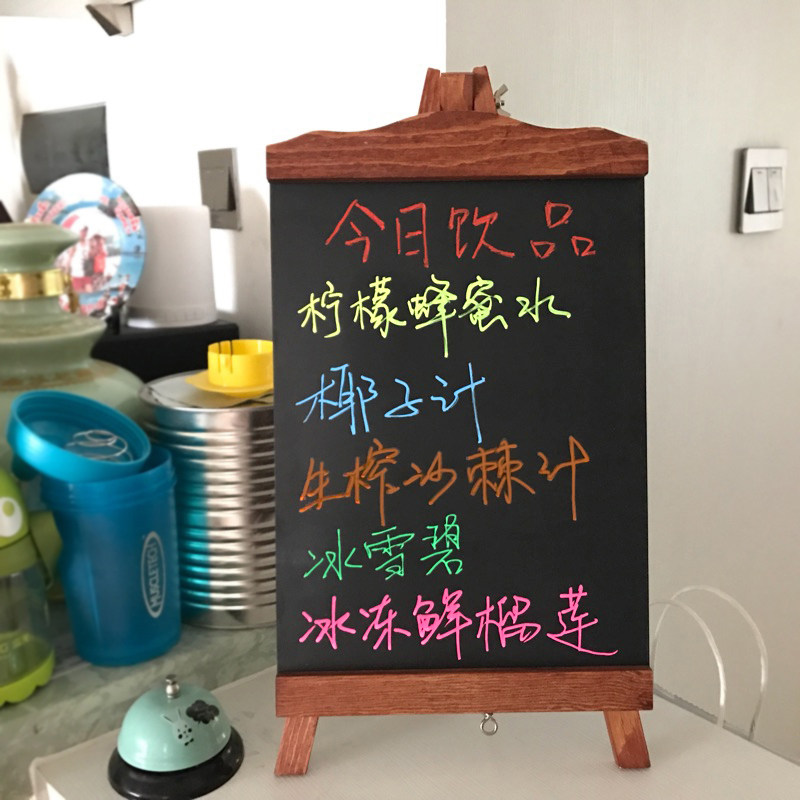 今日饮品
柠檬蜂蜜水
椰子汁
生榨沙棘汁
冰雪碧
冰冻鲜榴莲